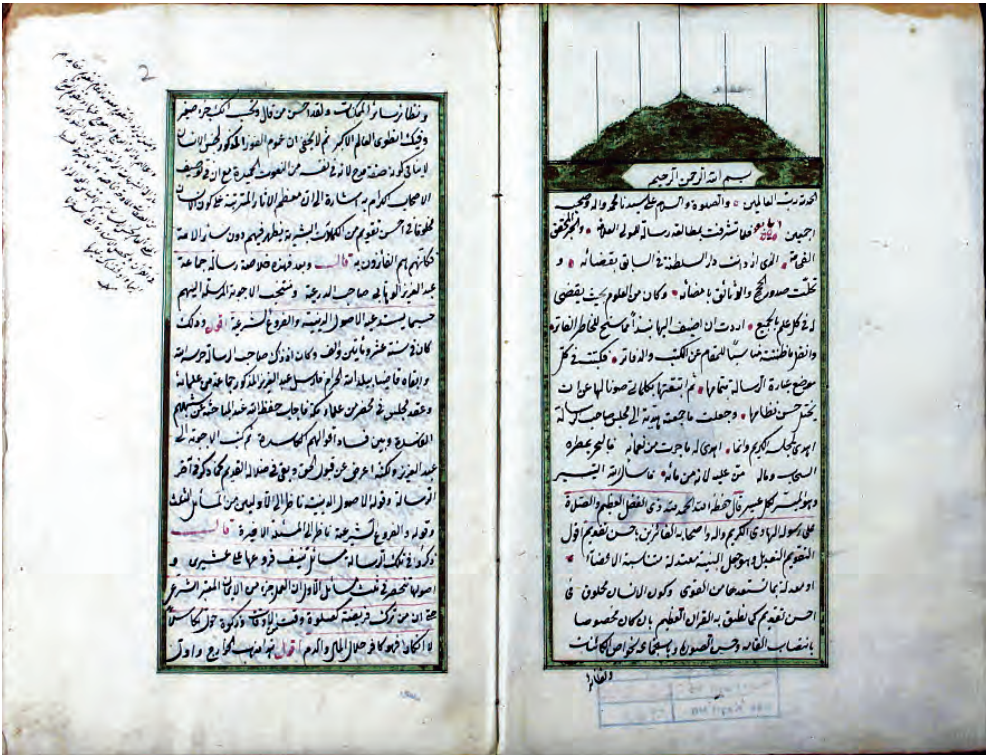 بسم الله الرحمن الرحيم
الحمد لله رب العالمين والصلوة والسلام على سيدنا محمد واله وصحبه
اجمعين فلما تشرفت بمطالعة رسالة المولى العلامة والنحرير
الفهامة الذى ازدانت دار السلطنة فى السابق بقضائه و
تحلت صدور الحجج والوثائق بامضائه وكان من العلوم بحيث يقضى
له فى كل علم بالجميع اردت ان اضيف اليها نبذا مما سنح للخاطر الفاتر
وانقل ما ظننته مناسبا للمقام عن الكتب والدفاتر فكتبت فى كل
موضع عبارة الرسالة بتمامها ثم اتبعتها بكلامى صونا لها عن ان
يختل حسن نظامها وجعلت ما جمعته هدية الى مجلس صاحب الرسالة
اهدى لمجلسه الكريم وانما اهدى له ما حزت من نعمائه فالبحر يمطره
السحاب وماله من عليه لانه من مائه فاسال الله التيسير
وهو ميسر كل عسير قال حفظه الله الحمد لله ذى الفضل العظيم والصلاة
على رسوله الهادى الكريم واله واصحابه الفائزين باحسن تقويم اقول
التقويم التعديل وهو جعل البنية معتدلة متناسبة الاعضاء
او معدلة بما تستعد من القوى وكون الانسان مخلوق فى
احسن تقويم كما نطق به القران العظيم بان كان مخصوصا
بانتصاب القامة وحسن الصورة واستجماع خواص الكائنات
ونظائر
2
ونظائر سائر الممكنات ولقد احسن من قال وتحسب انك جرم صغير
وفيك انطوى العالم الاكبر ثم لا يخفى ان عموم الفوز المذكور لجنس الانسان
لا ينافى كونه صفة مدح لانه فى نفسه من النعوت الحميدة مع ان فى توصيف
الاصحاب الكرام به اشارة الى ان معظم الاثار المترتبة على كون الانسان
مخلوقا فى احسن تقويم من الكمالات البشرية يظهر فيهم دون سائر الامة
فكانهم هم الفائزون به قال وبعد فهذه خلاصة رسالة جماعة
عبد العزيز الوهابى صاحب الدرعية ومنتخب الاجوبة المرسلة اليهم
حسبما يستدعيه الاصول الدينية والفروع الشرعية اقول وذلك
كان فى سنة عشر ومائتين والف وكان اذ ذاك صاحب الرسالة حرسه الله
وابقاه قاضيا ببلد الله الحرام فارسل عبد العزيز المذكور جماعة من علمائه
وعقد مجلس فى محضر من علماء مكة فاجاب حفظه الله عند المباحثة عن شبههم
الفاسدة وبين فساد اقوالهم الكاسدة ثم كتب الاجوبة الى
عبد العزيز ولكنه اعرض عن قبول الحق وبقى فى ضلاله القديم كما ذكر فى آخر
الرسالة وقوله الاصول الدينية ناظر الى الاوليين من المسائل الثلث
وقوله والفروع الشرعية ناظر الى المسئلة الاخيرة قال
ذكروا فى تلك الرسالة مسائل تنيف فروعها على عشرين و
اصولها تنحصر فى ثلث مسائل الاول ان العمل جزء من الايمان المعتبر الشرعى
حتى ان من ترك فريضة كصلوة وقت من الاوقات وزكوة حول تكاسلا
لا انكارا فهو كافر حلال المال والدم اقول هذا مذهب الخوارج واول